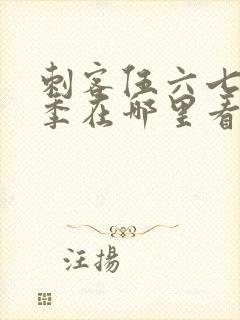 刺客伍六七
季在哪里看
汪揚